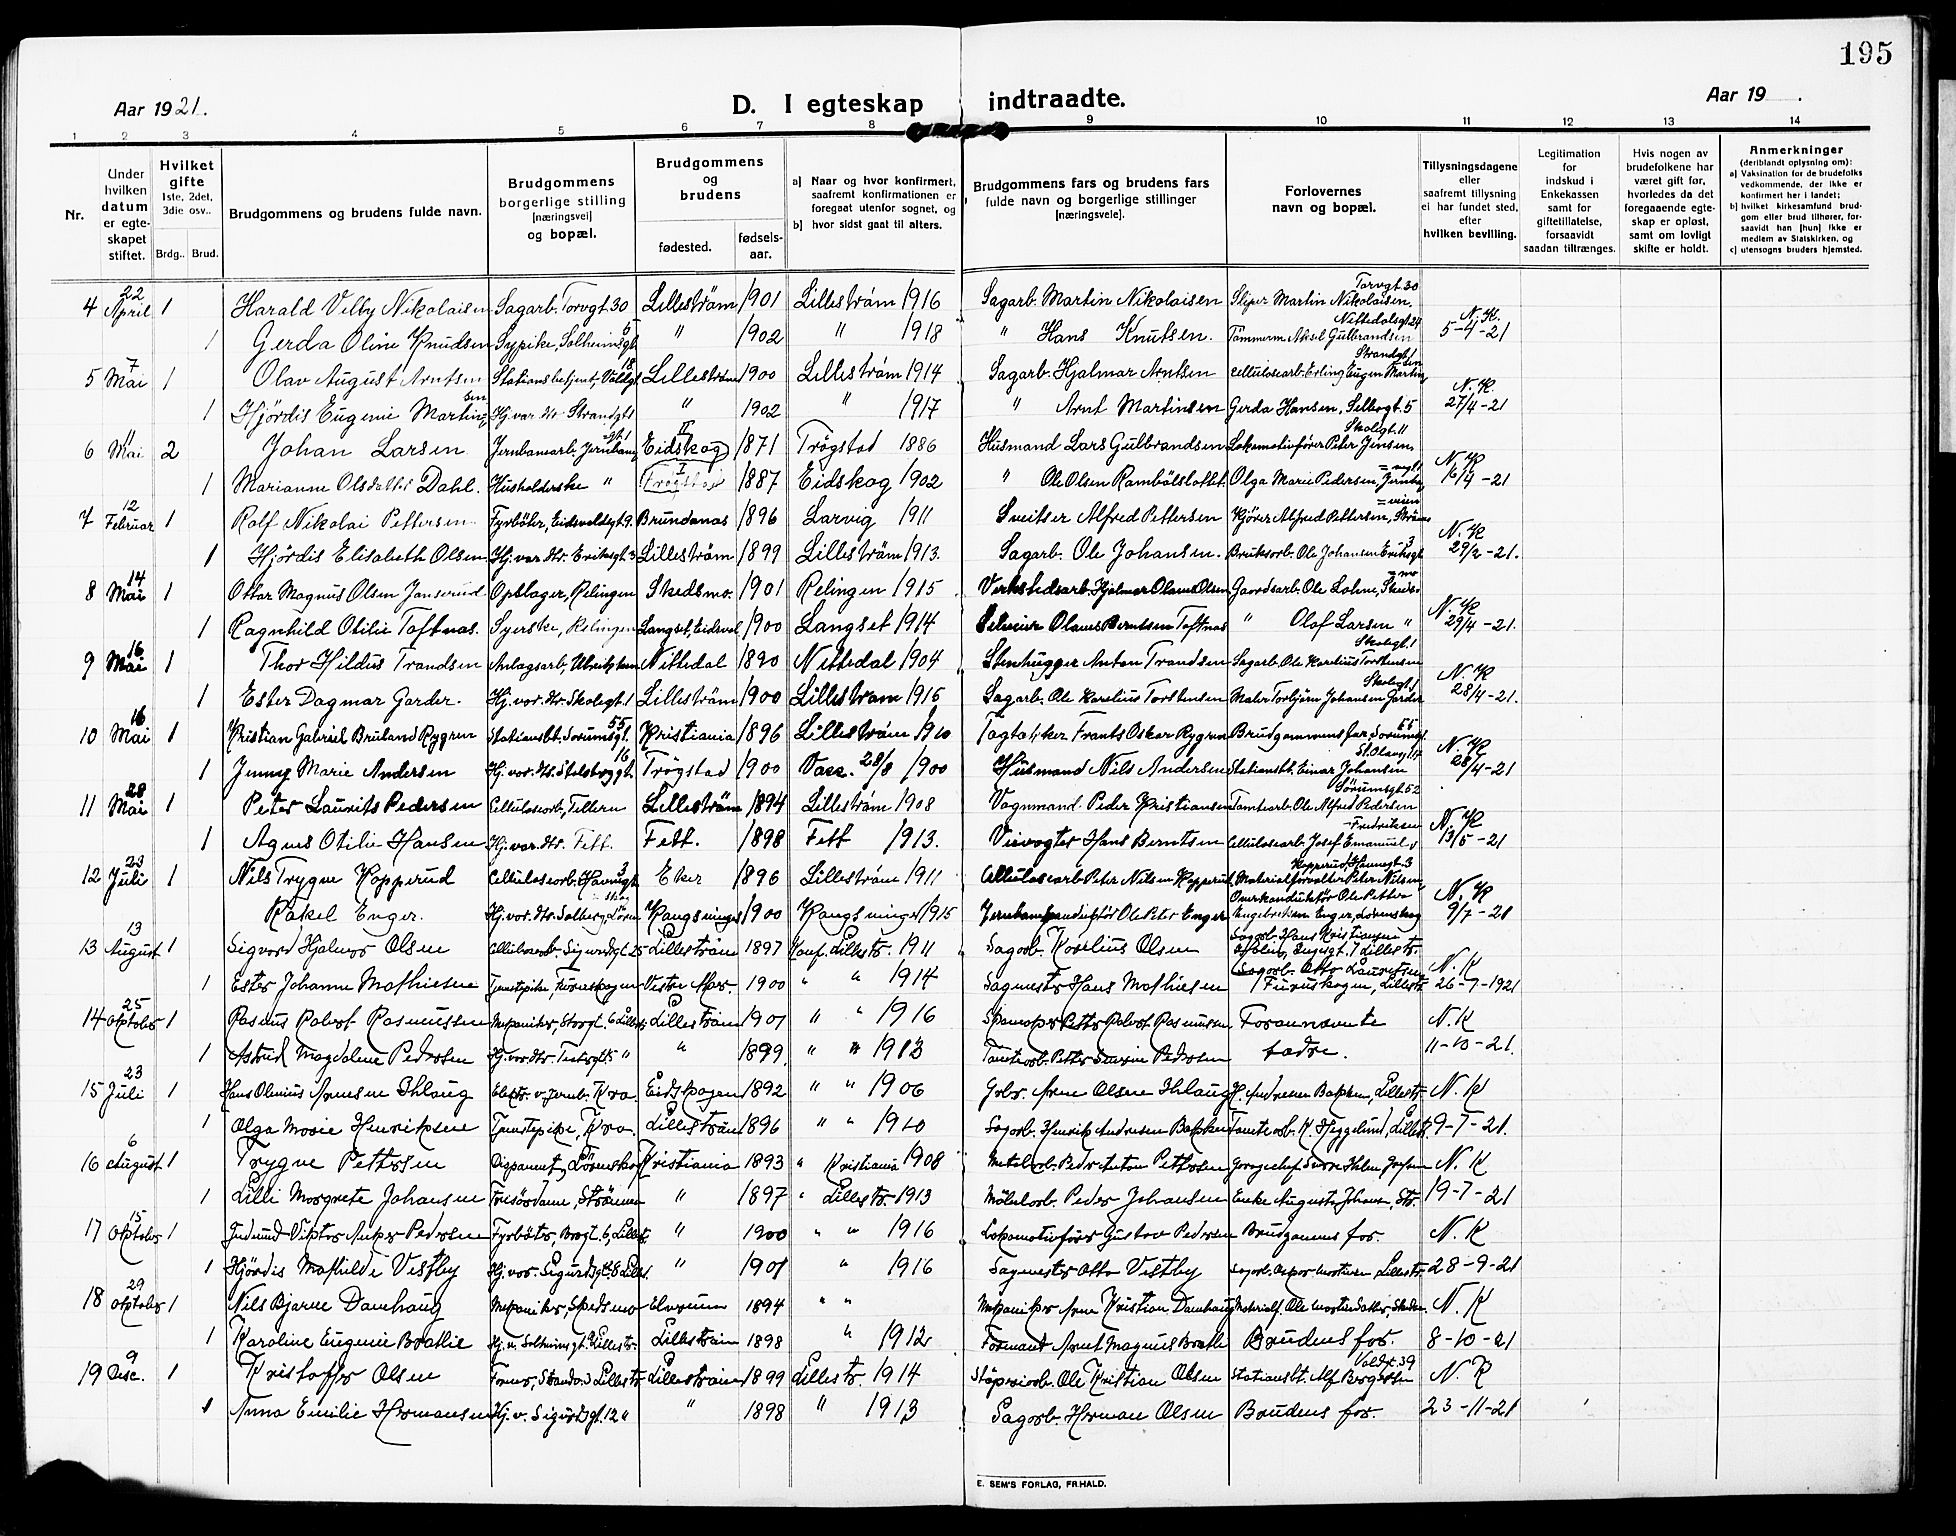 195
Aar 1921.
D. I egteskap indtraadte.
Aar 19 .
1 2 3 4 5 6 7 8 9 10 11 12 13 14
Nr.
Under hvilken datum er egte- skapet stiftet.
Hvilket gifte 1ste, 2det, 3die osv..
Brdg.. Brud.
Brudgommens og brudens fulde navn.
Brudgommens borgerlige stilling [næringsvei] og bopæl.
Brudgommens og brudens
fødested. fødsels- aar.
a) Naar og hvor konfirmert, saafremt konfirmationen er foregaat utenfor sognet, og
b) hvor sidst gaat til alters.
Brudgommens fars og brudens fars fulde navn og borgerlige stillinger [næringsveie].
Forlovernes navn og bopæl.
Tillysningsdagene eller saafremt tillysning ei har fundet sted, efter hvilken bevilling.
Legitimation for indskud i Enkekassen samt for giftetillatelse, forsaavidt saadan tiltrænges.
Hvis nogen av brudefolkene har været gift før, hvorledes da det foregaaende egte- skap er opløst, samt om lovligt skifte er holdt.
Anmerkninger (deriblandt oplysning om):
a) Vaksination for de brudefolks vedkommende, der ikke er konfirmert her i landet;
b) hvilket kirkesamfund brud- gom eller brud tilhører, for- saavidt han [hun] ikke er medlem av Statskirken, og
c) utensogns bruders hjemsted.
4 22 April 1 Harald Velby Nikolaisen Sagarb. Torvgt. 30 Lillestrøm 1901 Lillestrøm 1916 Sagarb. Martin Nikolaisen Sliper Martin Nikolaisen. Torvgt 30
1 Gerda Oline Knudsen Sypike, Solheimsgt. 5 " 1902 " 1918 " Hans Knutsen. Tømmerm. Aksel Gulbrandsen Nittedalsgt 24 N. K. 5-4-21
5 7 Mai 1 Olav August Arntsen Stationsbetjent, Voldgt. 18 Lillestrøm 1900 Lillestrøm 1914 Sagarb. Hjalmar Arntsen Cellulosearb. Erling Eugen Martinsen Strandgt 1
1 Hjördis Eugenie Martinsen Hj. vær. dtr. Strandgt 1 " 1902 " 1917 " Arnt Martinsen Gerda Hansen, 5 N. K. 27/4-21
6 11 Mai 2 Johan Larsen Jernbanearb, Jernbanegt. 1 Eidskog II 1871 Trøgstad 1886 Husmand Lars Gulbrandsen Lokomotivfører Peter Jensen Skolegt. 11
1 Marianne Olsdatter Dahl. Husholderske " Trøgstad I 1887 Eidskog 1902 " Ole Olsen Olga Marie Pedersen, N. K. 16/4-21
7 12 Februar 1 Rolf Nikolai Pettersen Fyrbøter, Eidsvoldsgt 9. Brundanas 1896 Larvig 1911 Sveitser Alfred Pettersen Kjører Alfred Pettersen, Strømsveien
1 Hjördis Elisabeth Olsen Hj. vær. dtr. Eriksgt. 3 Lillestrøm 1899 Lillestrøm 1913. Sagarb. Ole Johansen. Bruksarb. Ole Johansen Eriksgt 3 N. K. 29/2-21.
8 14 Mai 1 Ottar Magnus Olsen Jonserud Oplager, Relingen Skedsmo. 1901 Relingen 1915 Verkstedsarb. Hjalmar Olaus Olsen Gaardsarb. Ole Lohne, Skedsmo
1 Ragnhild Otilie Toftnas. Syerske, Relingen Langset, Eidsvol 1900 Langset 1914 Olaus Berntsen Toftnas " Olaf Larsen " N. K. 29/4-21.
9 16 Mai 1 Thor Hildus Trandsen Anlagsarb, Nittedal 1890 Nittedal 1904 Stenhugger Anton Trandsen Sagarb. Ole Karelius Torstensen Skolegt. 1
1 Ester Dagmar Garder. Hj. vær. dtr. Skolegt. 1 Lillestrøm 1900 Lillestrøm 1915 Sagarb. Ole Karelius Torstensen Maler Torbjørn Johansen Garder Skolegt. 1 N. K. 28/4-21.
10 16 Mai 1 Kristian Gabriel Bruland Rygren Stationsbt. Sorumsgt. 55 Kristiania 1896 Lillestrøm 1910 Tagtækker Frants Oskar Rygren Brudgommens far, Sorumsgt 55
1 Jenny Marie Andersen Hj. vær. dtr. 16 Trøgstad 1900 Vacc. 28/8 1900 Husmand Nils Andersen Stationsbt. Einar Johansen St. Olavsgt. 17 N. K. 28/4-21
11 28 Mai 1 Peter Laurits Pedersen Cellulosearb, Lillestrøm 1894 Lillestrøm 1908 Vognmand. Peder Kristiansen Tomtearb. Ole Alfred Pedersen Sørumsgt. 52
1 Agnes Otilie Hansen Hj. vær. dtr. Fett. Fett. 1898 Fett 1913. Hans Berntsen Cellulosearb. Josef Emanuel Fredriksen N. K. 13/5-21
12 23 Juli 1 Nils Trygve Kopperud Cellulosearb. Havnegt. 3 Eker 1896 Lillestrøm 1911 Cellulosearb Peter Nilsen Kopperud Materialforvalter Peter Nilsen Kopperud, Havnegt. 3
Rakel Enger. Hj. vær. dtr. Solberg, Kongsvinger 1900 Kongsvinger 1915 Jernbanekonduktør Ole Peter Enger Overkonduktør Ole Petter Engebretsen Enger, Lørenskog N. K. 9/7-21
13 13 August 1 Sigvard Hjalmar Olsen Cellulosearb. Sigurdsgt. 25 Lillestrøm 1897 Konf. Lillestr. 1911 Sagarb. Karelius Olsen Sagarb. Hans Kristiansen Engesgt. 7 Lillestr.
1 Ester Johanne Mathiesen Tjenstpike, Furuskogen Vestre 1900 " " 1914 Sagmester Hans Mathiesen Sagarb. Otto Lauritsen, Furuskogen, Lillestr. N. K 26-7-1921
14 25 Oktober 1 Rasmus Robert Rasmussen Mekaniker, Storgt. 6 Lillestr. Lillestrøm 1901 " " 1916 Skomaker Petter Robert Rasmussen Forannævnte N. K
1 Astrid Magdalene Pedersen Hj. vær. dtr. " " 1899. " " 1913 Tomtearb. Petter Pedersen fædre. 11-10-21.
15 23 Juli 1 Hans Olenius Arnesen Ihlaug Elektr. v. Jernb. Kra. Eidskogen 1892 " " 1906 Gbr. Arne Olsen Ihlaug H. Andresen Bakken, Lillestr. N. K
1 Olga Marie Henriksen Tjenstepike, Kra. Lillestrøm 1896 " " 1910 Sagarb. Henrik Andresen Bakken Tomtearb. K. Heggelund, Lillestr. 9-7-21.
16 6 August 1 Trygve Pettersen Kristiania 1893 " Kristiania 1908 Metalarb. Peder Anton Pettersen Garagechef N. K
1 Lilli Margrete Johansen Frisørdame, Strømmen " 1897 " Lillestr. 1913 Møbelarb. Peder Johansen Enke Augusta Johansen, Str. 19-7-21
17 15 Oktober 1 Viktor Anker Pedersen Fyrbøter, Brogt. 6, Lillestr. " 1900 " " 1916 Lokomotivfører Gustav Pedersen Brudgomens far. N. K
1 Hjördis Mathilde Vestby Hj. vær. Sigurdsgt. 8 Lillestr. " 1901 " 1916 Sagmester Otto Vestby Sagarb. Lillestr. 28-9-21
18 29 Oktober 1 Nils Bjarne Damhaug Mekaniker, Skedsmo Elverum 1894 " " Mekaniker Arne Kristian Damhaug Materialf. Ole N. K
1 Karoline Eugenie Brathie Hj. v. Solheimsgt. Lillestr. Lillestrøm 1898 " 1912 Formand Arnt Magnus Brathe Brudens far. 8-10-21
19 9 Dec. 1 Kristoffer Olsen Former, Strandv. Lillestr. Lillestrøm 1899 Lillestr. 1914 Støperiarb. Ole Kristian Olsen Stationsbt. Alf Borgersen Voldgt. 39 N. K
1 Anna Emilie Hermansen Hj. v. Sigurdsgt. 12 " " 1898 " 1913 Sagarb. Herman Olsen Brudens far. 23-11-21
E. SEM'S FORLAG, FR.HALD.